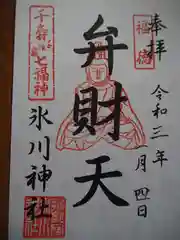 奉拝
福徳
令和三年
一月四日
弁財天
千寿
七福神
氷川神社